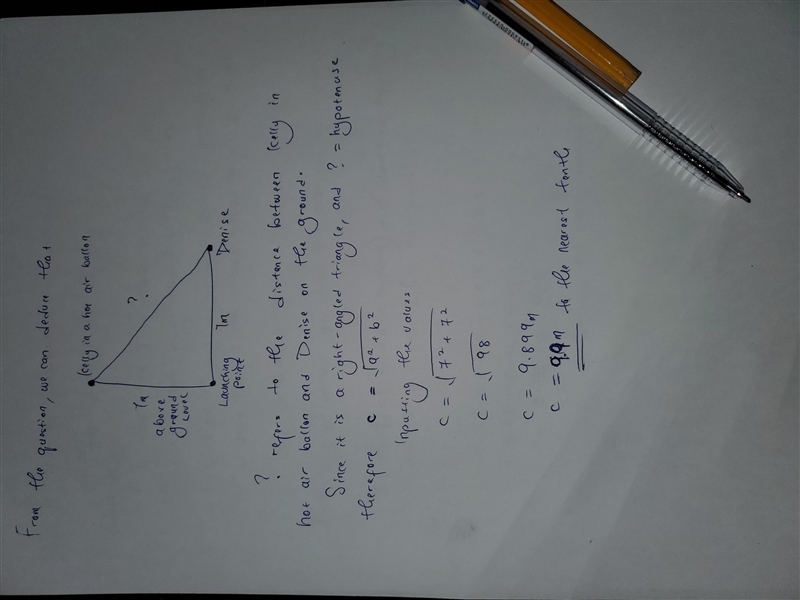 From the question, we can deduce that
Kelly in a hot air ballon
?
7m
above
ground
level
7m
Launching
point
Denise
? refers to the distance between Kelly in
hot air ballon and Denise on the ground.
Since it is a right-angled triangle, and ? = hypotenuse
therefore c = √a² + b²
Inputting the values
c = √7² + 7²
c = √98
c = 9.899m
c = 9.9m to the nearest tenth